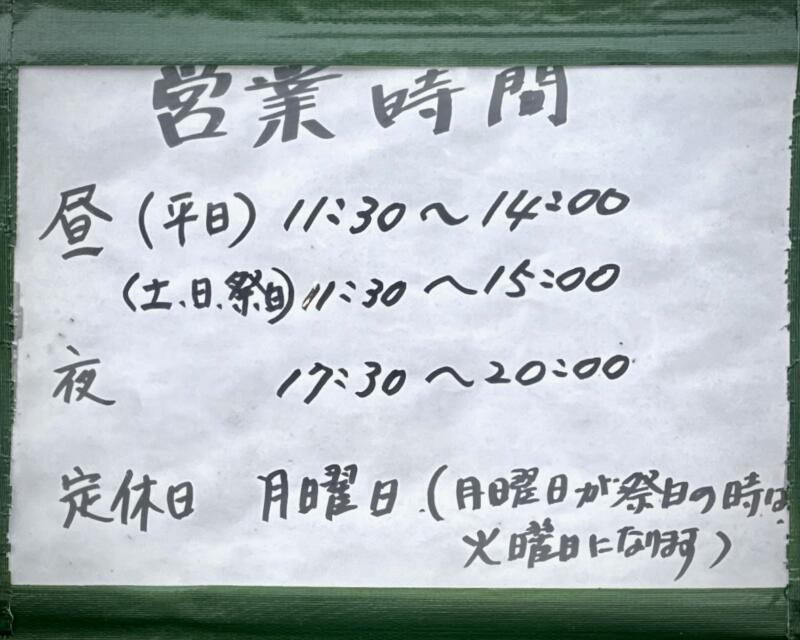 営業時間
昼(平日)11:30～14:00
(土、日、祭日)11:30～15:00
夜 17:30～20:00
定休日 月曜日(月曜日が祭日の時は
火曜日になります)